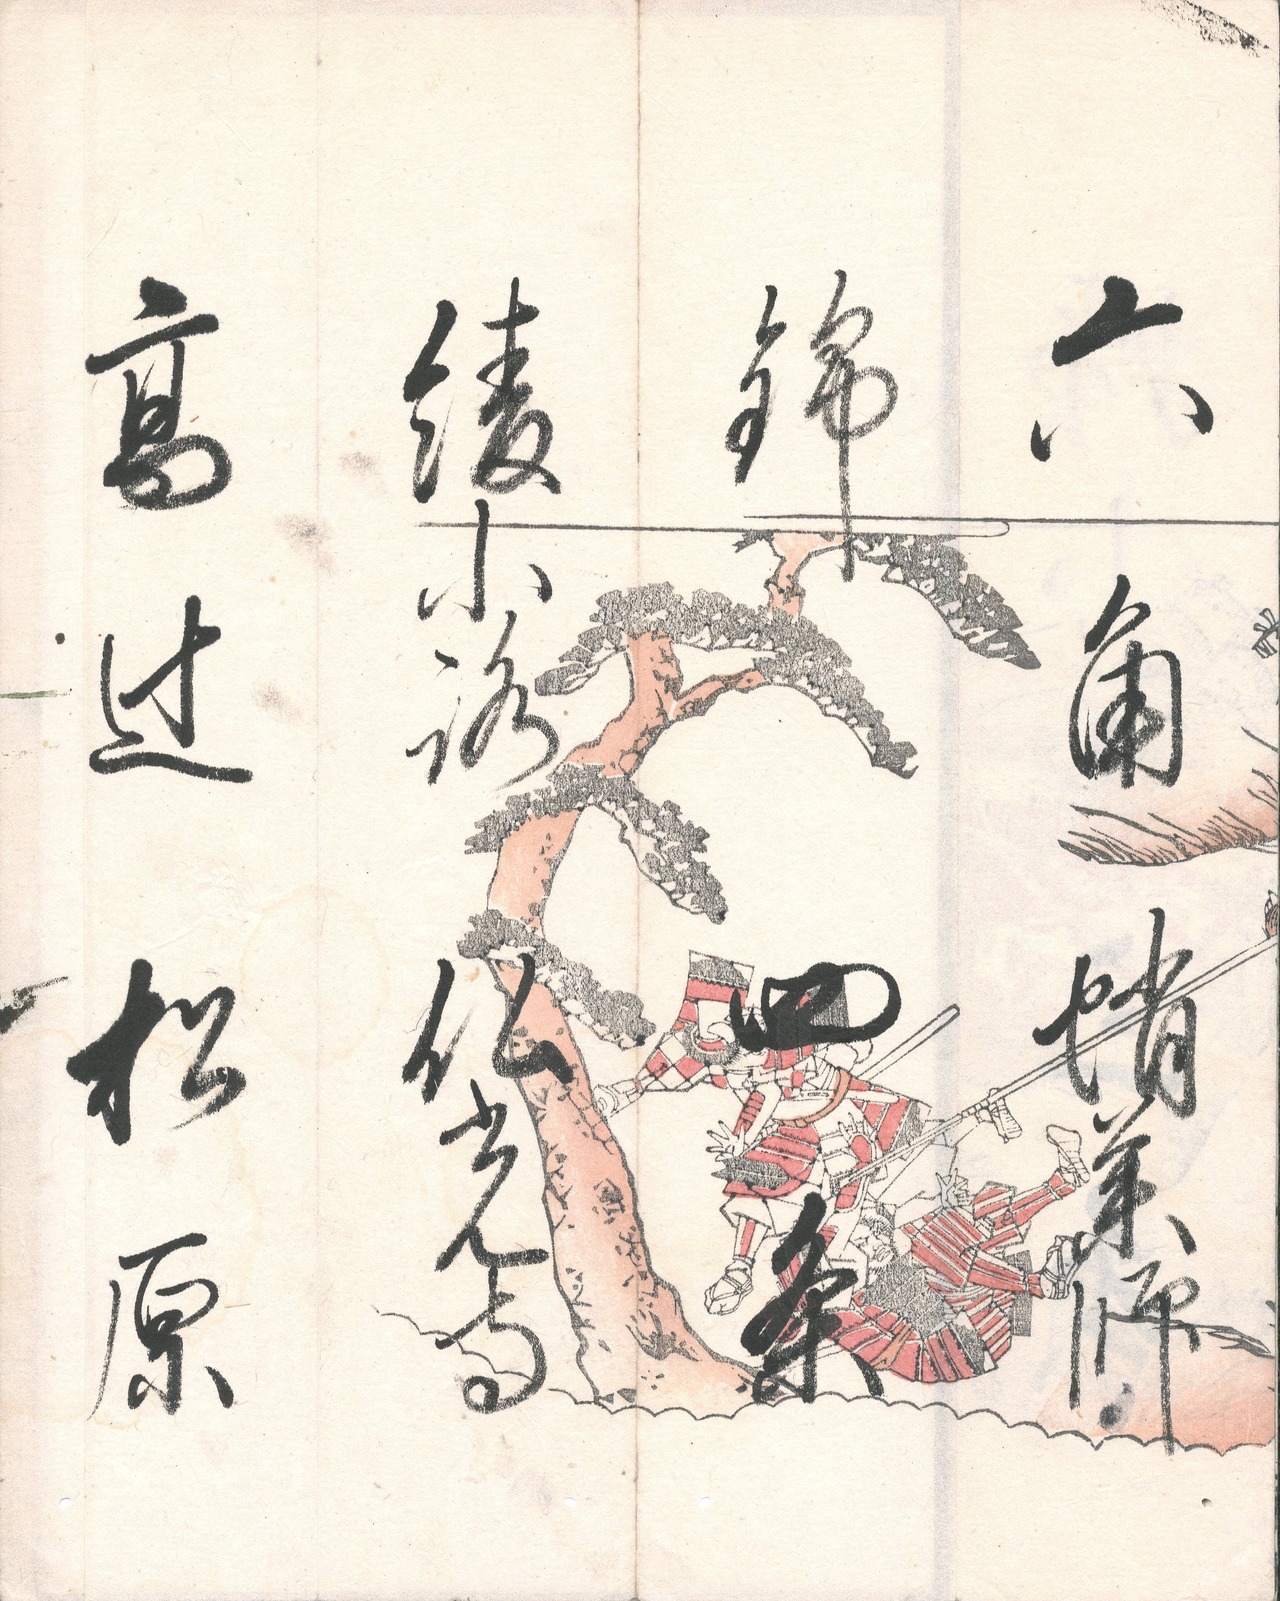 六角 蛸薬師
錦 四条
綾小路 仏光寺
高辻 松原